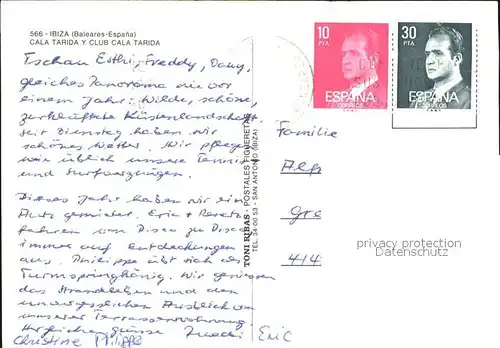 566 - IBIZA (Baleares-España)
CALA TARIDA Y CLUB CALA TARIDA
Tschau Esthi, Freddy, Dany,
gleiches Panorama wie vor
einem Jahr: Wilde, schöne,
zerklüftete Küstenlandschaft.
Seit Dienstag haben wir
schönes Wetter. Wir pflegen
wie üblich unsere Tennis
und Surfvergnügen.
Dieses Jahr haben wir ein
Auto gemietet. Eric + Renato
fahren von Disco zu Disco
immer auf Entdeckungen
aus. Philippe übt sich als
Turmspringkönig. Wir geniessen
das Strandleben und den
unvergesslichen Ausblick von
unserer Terrassenwohnung
Herzliche Grüsse Eric
Christine Philippe
TONI RIBAS - POSTALES FIGUERETAS
TEL. 34 00 53 - SAN ANTONIO (IBIZA)
10
PTA
ESPAÑA
CORREOS
30
PTA
ESPAÑA
CORREOS
Familie
Alp
Gre
414
privacy protection
Datenschutz